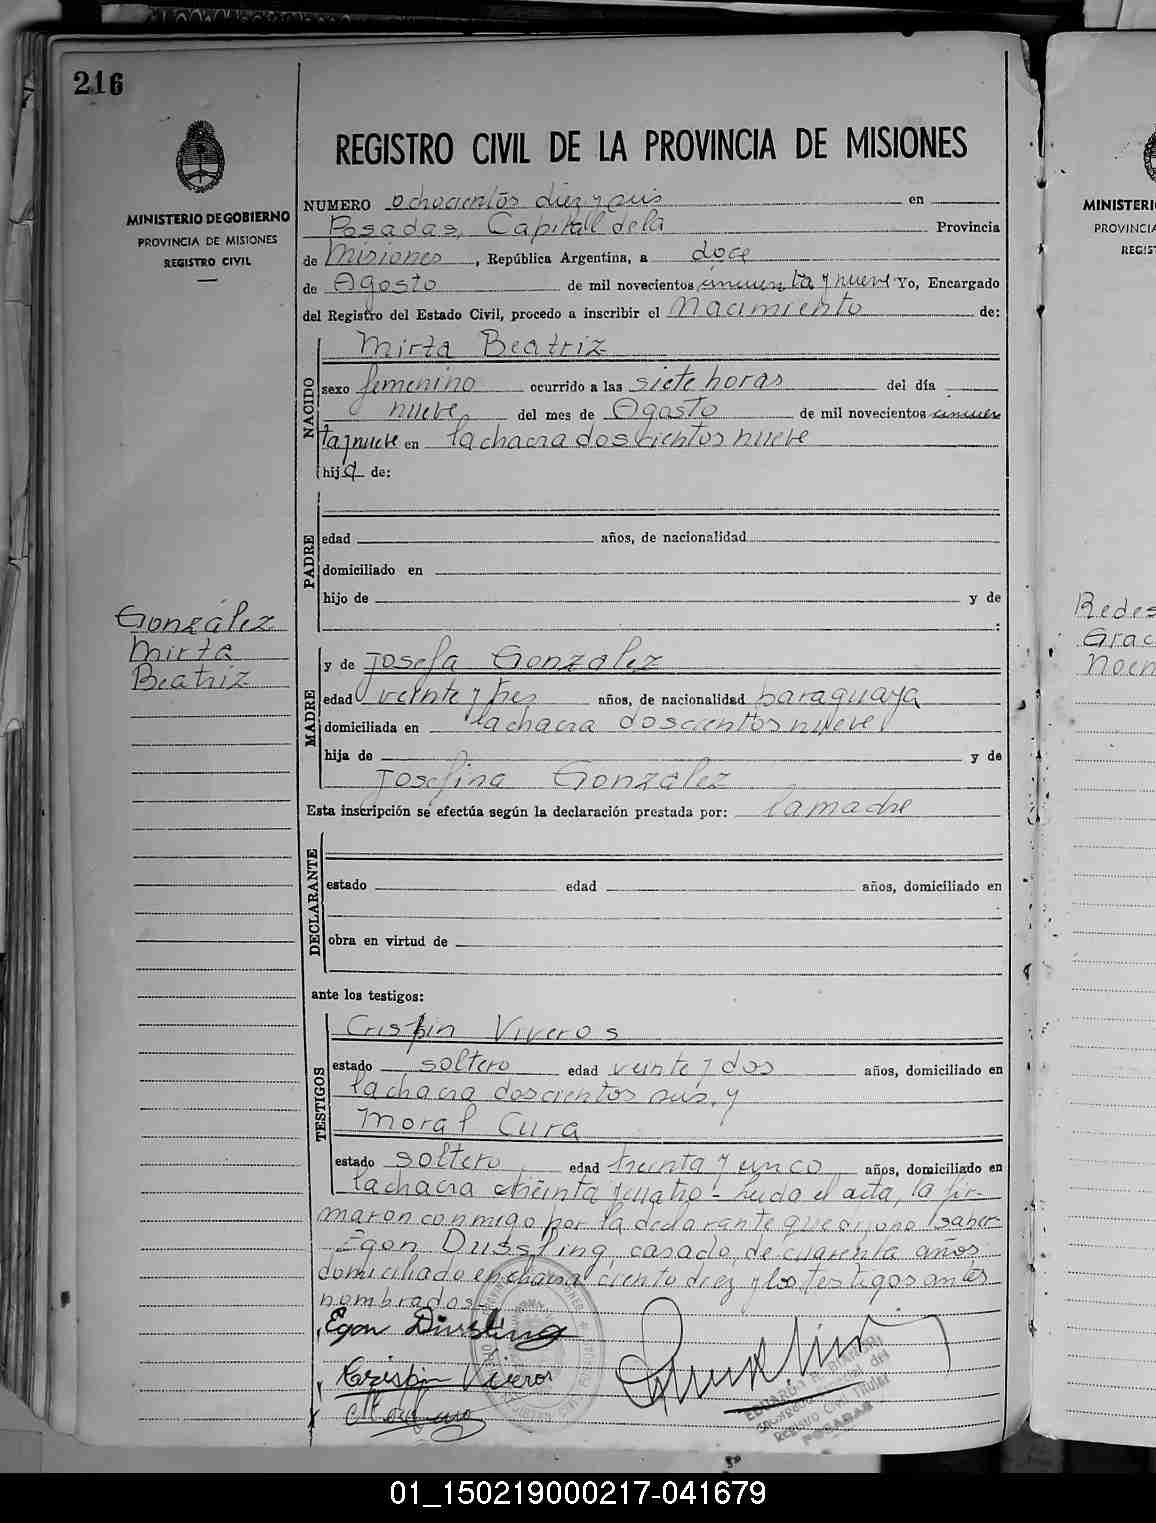 216
REGISTRO CIVIL DE LA PROVINCIA DE MISIONES
MINISTERIO DE GOBIERNO
PROVINCIA DE MISIONES
REGISTRO CIVIL
NUMERO ochocientos diez y seis en
Posadas, Capital de la Provincia
de Misiones, República Argentina, a doce
de Agosto de mil novecientos cincuenta y nueve Yo, Encargado
del Registro del Estado Civil, procedo a inscribir el Nacimiento de:
NACIDO
Mirta Beatriz
sexo femenino ocurrido a las siete horas del día
nueve, del mes de Agosto de mil novecientos cincuen
ta y nueve en la chacra doscientos nueve
hija de:
PADRE
edad años, de nacionalidad
domiciliado en
hijo de y de
:
González
Mirta
Beatriz
MADRE
y de Josefa González
edad veinte y tres años, de nacionalidad paraguaya
domiciliada en la chacra doscientos nueve,
hija de y de
Josefina González
Esta inscripción se efectúa según la declaración prestada por: la madre
DECLARANTE
estado edad años, domiciliado en
obra en virtud de
ante los testigos:
TESTIGOS
Crispin Viveros
estado soltero edad veinte y dos años, domiciliado en
la chacra doscientos seis, y
Moral Cura
estado soltero, edad treinta y cinco años, domiciliado en
la chacra y cuatro - leída el acta, la fir-
maron conmigo por la declarante que dijo no saber
Egon Dussling, casado, de cuarenta años
domiciliado en chacra ciento diez y los testigos antes
nombrados
Egon Dussling
Crispin Viveros
Registro Civil Titular
POSADAS
MINISTERI
PROVINCIA
REGIST
Redes
Grac
Noem
01_150219000217-041679